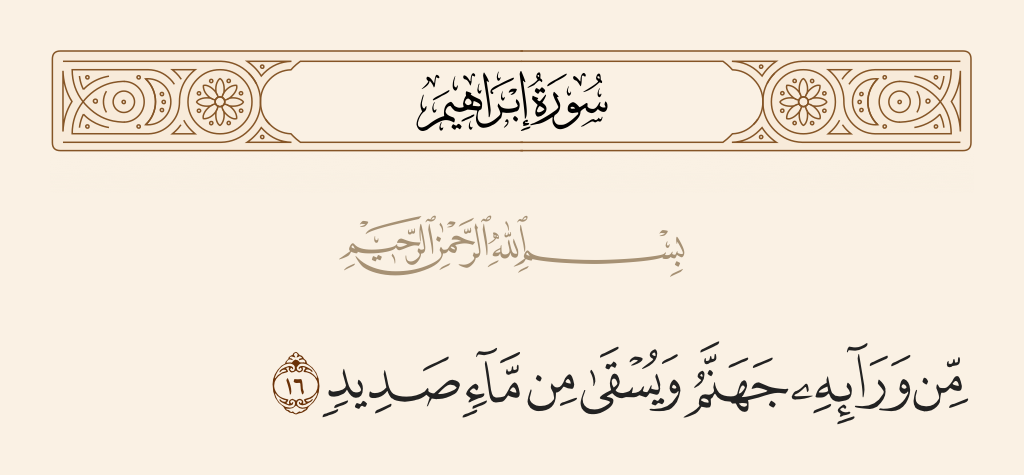 سُورَةُ إِبْرَاهِيمَ
بِسْمِ ٱللَّهِ ٱلرَّحْمَٰنِ ٱلرَّحِيمِ
مِّن وَرَآئِهِۦ جَهَنَّمُ وَيُسْقَىٰ مِن مَّآءٍ صَدِيدٍ ١٦